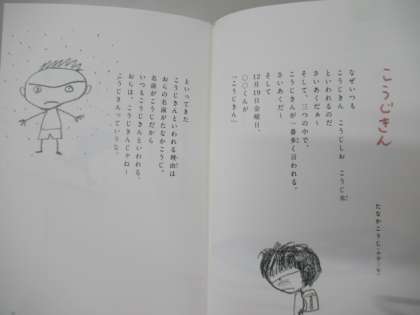 こうじきん
たなかこうじ
なぜいつも
こうじきん こうじしお こうじ
といわれるのだ
さいあくだぁ~
そして、三つの中で、
こうじきんが一番多く言われる。
さいあくだ~
そして
12月19日金曜日、
〇〇くんが
「こうじきん」
といってきた
こうじきんといわれる理由は
おらの名前がたなかこうじ。
名前がこうじだから
いつもこうじきんといわれる。
おらは、こうじきんじゃねー
こうじきんっていうな。